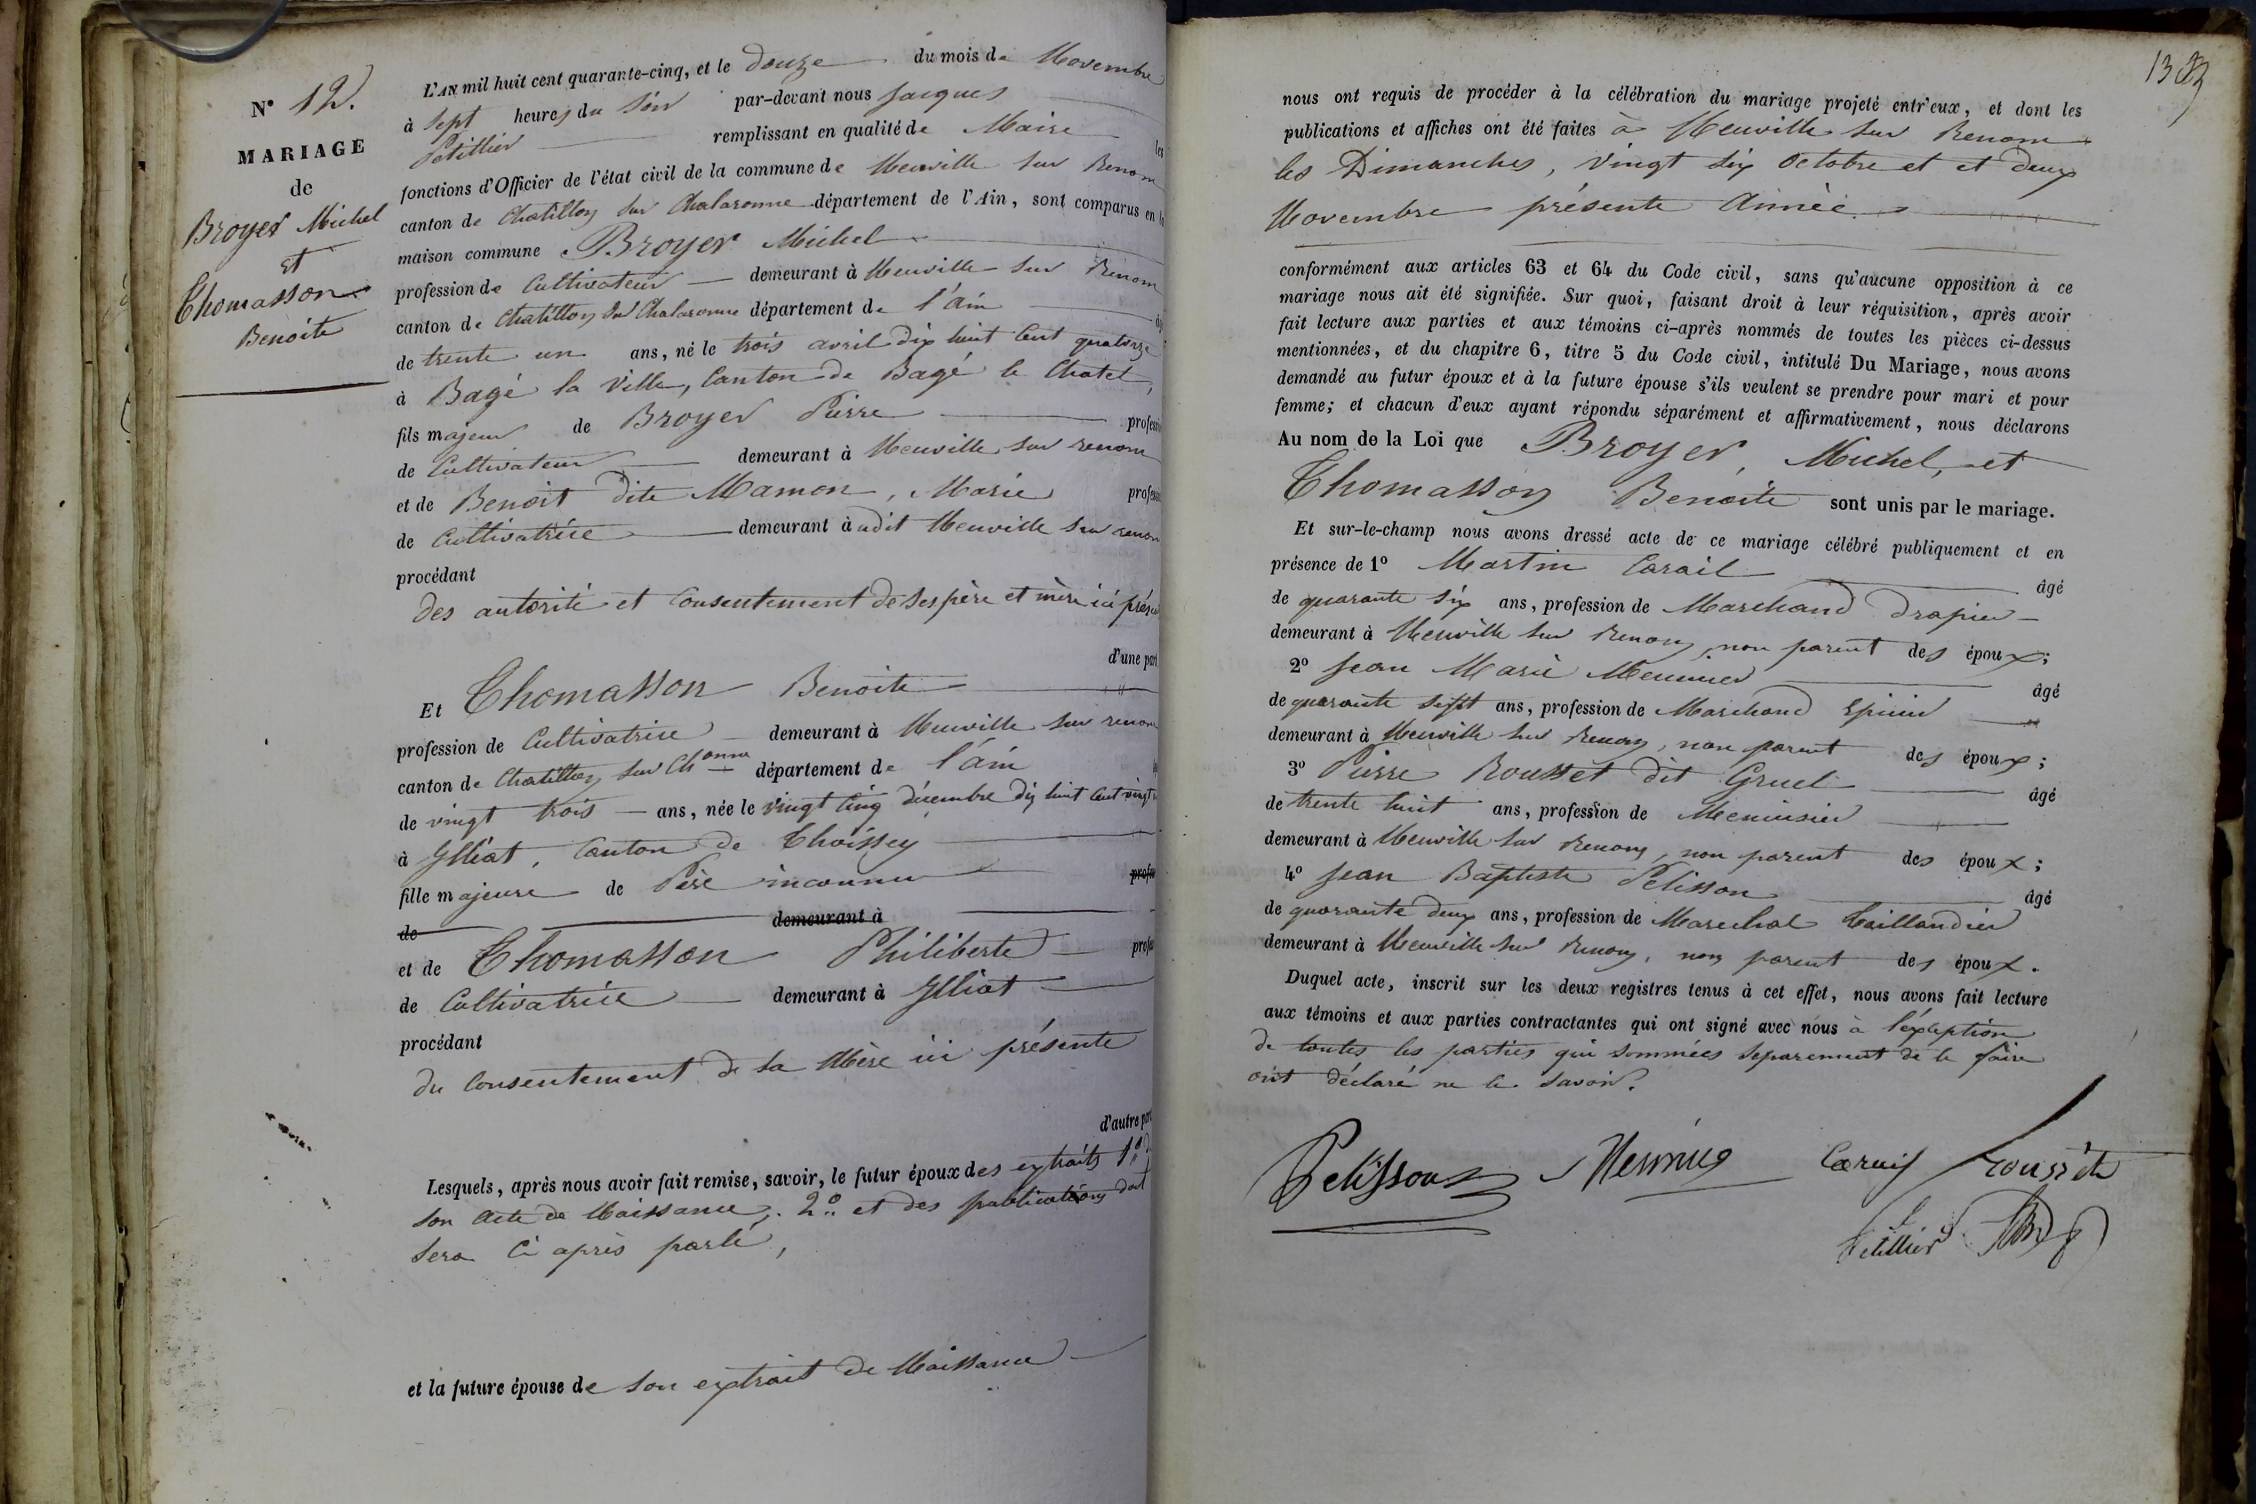 N° 12.
MARIAGE
de
Broyer Michel
et
Thomasson
Benoite
L'AN mil huit cent quarante-cinq, et le douze du mois de Novembre
à sept heures du soir par-devant nous Jacques
Petillier remplissant en qualité de Maire les
fonctions d'Officier de l'état civil de la commune de Neuville sur Renom
canton de Chatillon sur Chalaronne département de l'Ain, sont comparus en la
maison commune Broyer Michel
profession de Cultivateur demeurant à Neuville sur Renom
canton de Chatillon sur Chalaronne département de l'ain
de trente un ans, né le trois avril dix huit Cent quatorze
à Bagé la Ville, Canton de Bagé le Chatel,
fils majeur de Broyer Pierre profession
de Cultivateur demeurant à Neuville sur renom
et de Benoit dite Mamon, Marie profession
de Cultivatrice demeurant à udit Neuville sur renom
procédant
des autorité et Consentement de ses père et mère ici présen
d'une part
Et Thomasson Benoite
profession de Cultivatrice demeurant à Neuville sur renom
canton de Chatillon sur Chonne département de l'ain
de vingt trois ans, née le vingt cinq décembre dix huit Cent vingt
à Illiat, Canton de Thoissey
fille majeure de Père inconnu profes
de demeurant à
et de Thomasson Philiberte profes
de Cultivatrice demeurant à Illiat
procédant
du Consentement de sa Mère ici présente
d'autre part
Lesquels, après nous avoir fait remise, savoir, le futur époux des extraits 1°
son Acte de Naissance; 2° et des publications dont
sera Ci après parlé,
et la future épouse de son extrait de Naissance
nous ont requis de procéder à la célébration du mariage projeté entr'eux, et dont les
publications et affiches ont été faites à Neuville sur Renom
les Dimanches, vingt six Octobre et et deux
Novembre présente Année.
conformément aux articles 63 et 64 du Code civil, sans qu'aucune opposition à ce
mariage nous ait été signifiée. Sur quoi, faisant droit à leur réquisition, après avoir
fait lecture aux parties et aux témoins ci-après nommés de toutes les pièces ci-dessus
mentionnées, et du chapitre 6, titre 5 du Code civil, intitulé Du Mariage, nous avons
demandé au futur époux et à la future épouse s'ils veulent se prendre pour mari et pour
femme; et chacun d'eux ayant répondu séparément et affirmativement, nous déclarons
Au nom de la Loi que Broyer, Michel, et
Thomasson Benoite sont unis par le mariage.
Et sur-le-champ nous avons dressé acte de ce mariage célébré publiquement et en
présence de 1° Martin Carail âgé
de quarante six ans, profession de Marchand drapier
demeurant à Neuville sur Renom, non parent des époux;
2° Jean Marie Meunier âgé
de quarante sept ans, profession de Marchand Epicier
demeurant à Neuville sur Renom, non parent des époux;
3° Pierre Rousset dit Gruel âgé
de trente huit ans, profession de Menuisier
demeurant à Neuville sur Renom, non parent des époux;
4° Jean Baptiste Pelisson âgé
de quarante deux ans, profession de Marechal taillandier
demeurant à Neuville sur Renom, non parent des époux.
Duquel acte, inscrit sur les deux registres tenus à cet effet, nous avons fait lecture
aux témoins et aux parties contractantes qui ont signé avec nous à l'éxception
de toutes les parties qui sommées separement de le faire
ont déclaré ne le savoir.
Pelisson Meunier Carail Roussete
Petillier